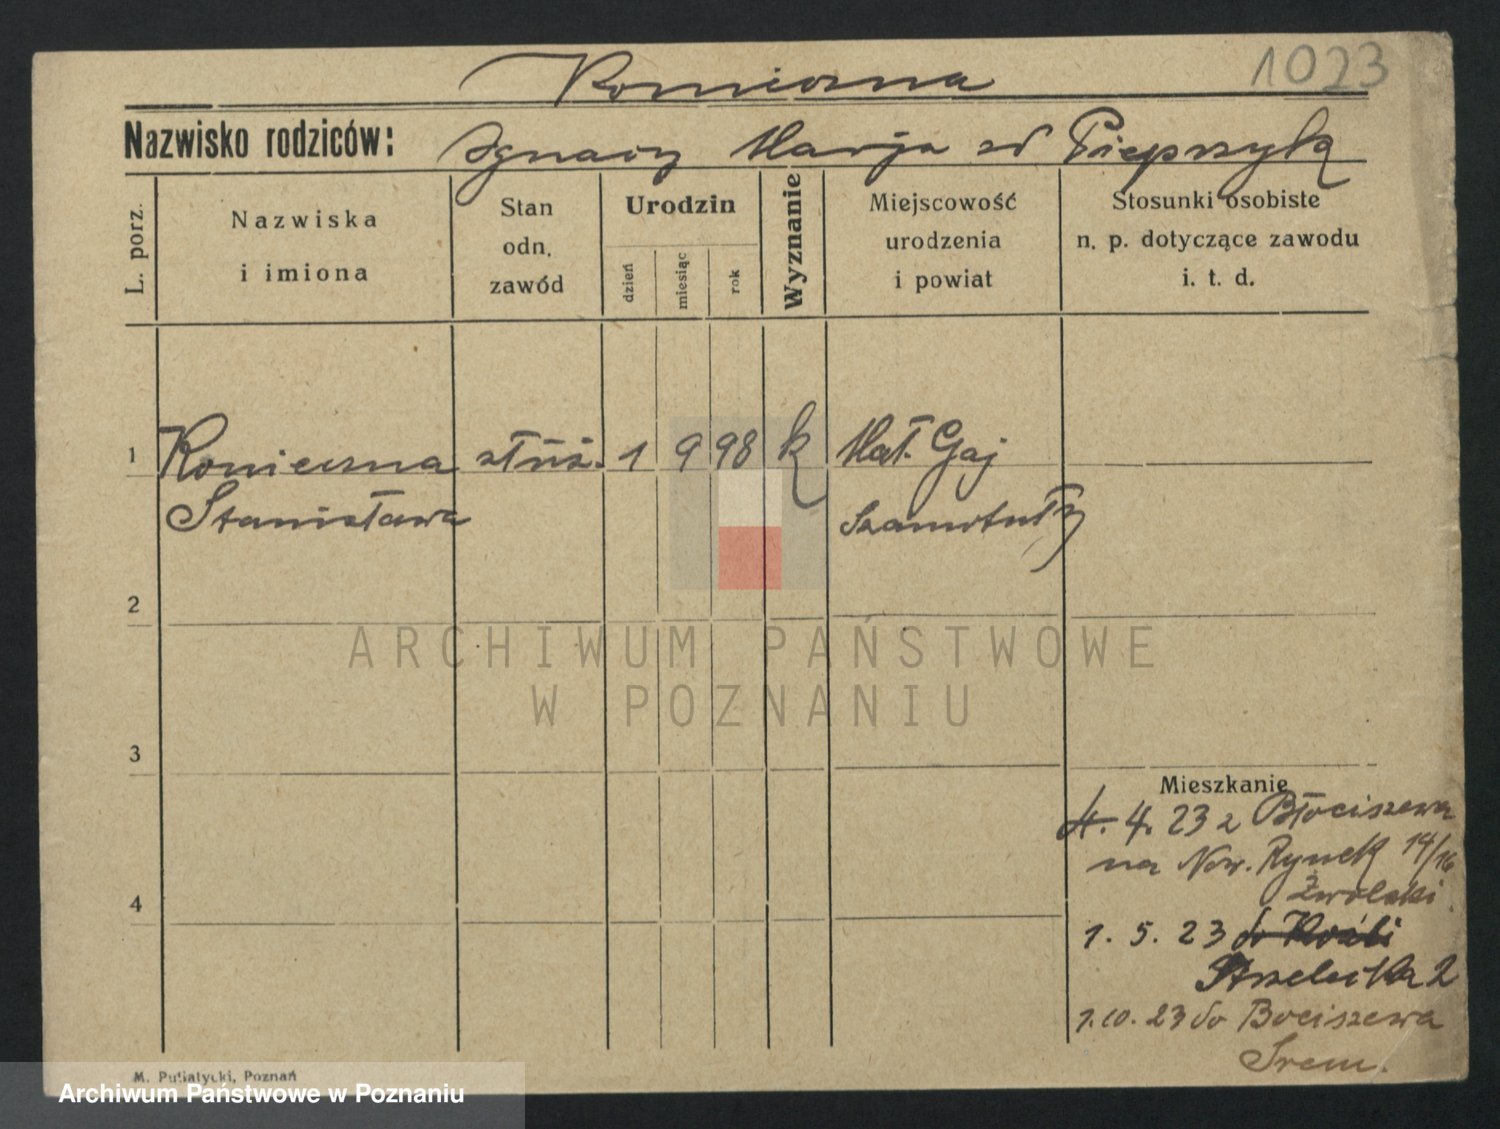 1023
Konieczna
Nazwisko rodziców: Ignacy Marja zd Pieprzyk
L. porz.
Nazwiska
i imiona
Stan
odn.
zawód
Urodzin
dzień
miesiąc
rok
Wyznanie
Miejscowość
urodzenia
i powiat
Stosunki osobiste
n. p. dotyczące zawodu
i. t. d.
1 Konieczna służ. 1 9 98 k Mał. Gaj
Stanisława Szamotuły
2
ARCHIWUM PAŃSTWOWE
W POZNANIU
3
Mieszkanie
4. 4. 23 z Błociszewa
na Now. Rynek 14/16
4
1. 5. 23 do
Strzelecka 2
1.10.23 do Bociszewa
Śrem.
M. Putiatycki, Poznań
Archiwum Państwowe w Poznaniu